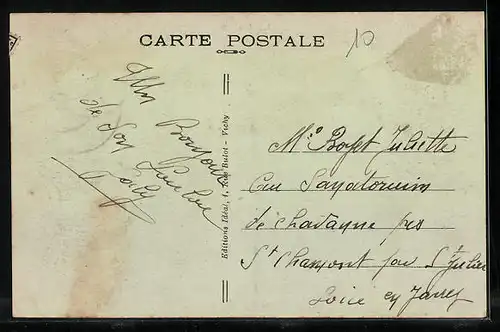 CARTE POSTALE
10
Un Bonjour
de Son
Editions Idéal, 4, Rue Butot - Vichy
Mlle Bost Juliette
au Sanatorium
de Chavanne près
St Chamont par St Julien
Loire en Jarrez